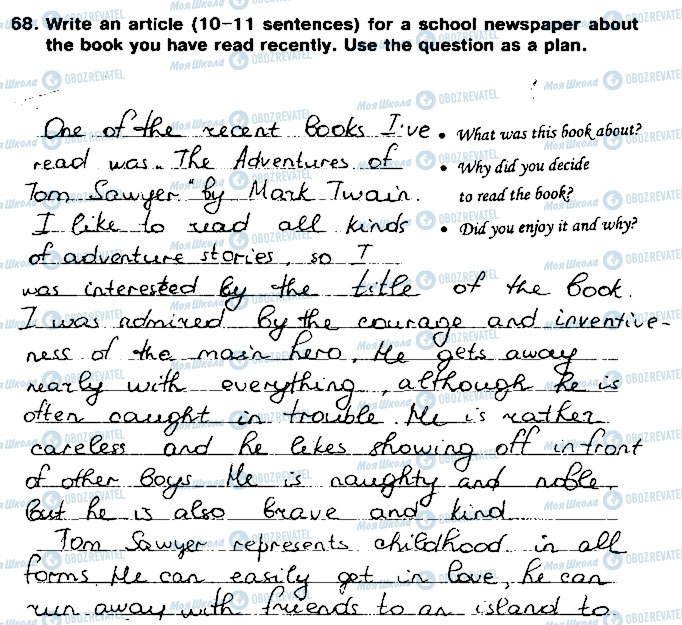 68. Write an article (10–11 sentences) for a school newspaper about
the book you have read recently. Use the question as a plan.
One of the recent books I've
read was „The Adventures of
Tom Sawyer" by Mark Twain.
I like to read all kinds
of adventure stories, so I
was interested by the title of the book.
I was admired by the courage and inventive-
ness of the main hero. He gets away
nearly with everything, although he is
often caught in trouble. He is rather
careless and he likes showing off in front
of other boys. He is naughty and noble,
but he is also brave and kind
Tom Sawyer represents childhood in all
forms. He can easily get in love, he can
run away with friends to an island to
• What was this book about?
• Why did you decide
to read the book?
• Did you enjoy it and why?
Моя Школа OBOZREVATEL